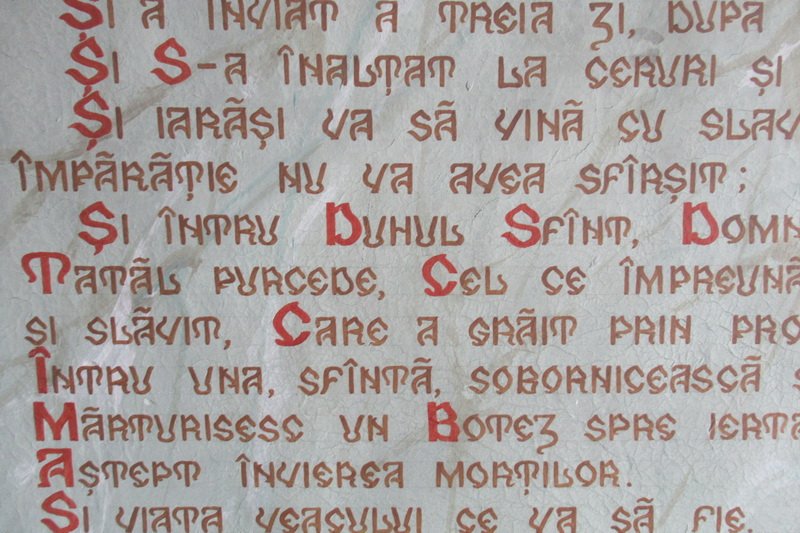 Și a înviat a treia zi, după
Și S-a înălțat la ceruri și
Și iarăși va să vină cu slav
Împărăție nu va avea sfîrșit;
Și întru Duhul Sfînt, Domn
Tatăl purcede, Cel ce împreună
și slăvit, Care a grăit prin pro
Întru una, sfîntă, sobornicească s
Mărturisesc un Botez spre ierta
Aștept învierea morților.
Și viața veacului ce va să fie.